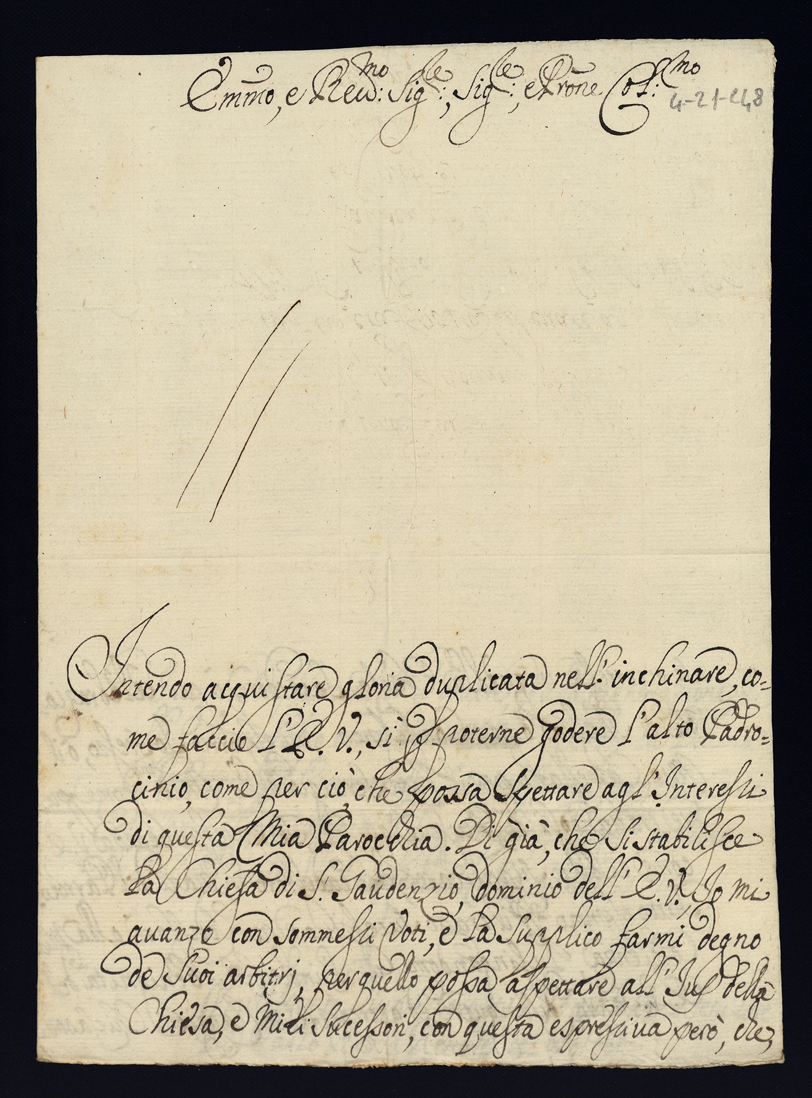 Emmo, e Revd:mo Sig:le, Sig:le, e Prone Col:mo
4-21-448
Intendo acquistare gloria duplicata nell' inchinare, co=
me faccio l' E. V., sì p poterne godere l' alto Padro=
cinio, come per ciò, che possa spettare agl' Interessi
di questa Mia Parocchia. Di già, che si stabilisce
la Chiesa di S. Gaudenzio, dominio dell' E. V., Io mi
avanzo con sommessi voti, e la supplico farmi degno
de suoi arbitrj, per quello possa aspettare all' Jus della
Chiesa, e Miei Sucessori, con questa espressiva però, che,